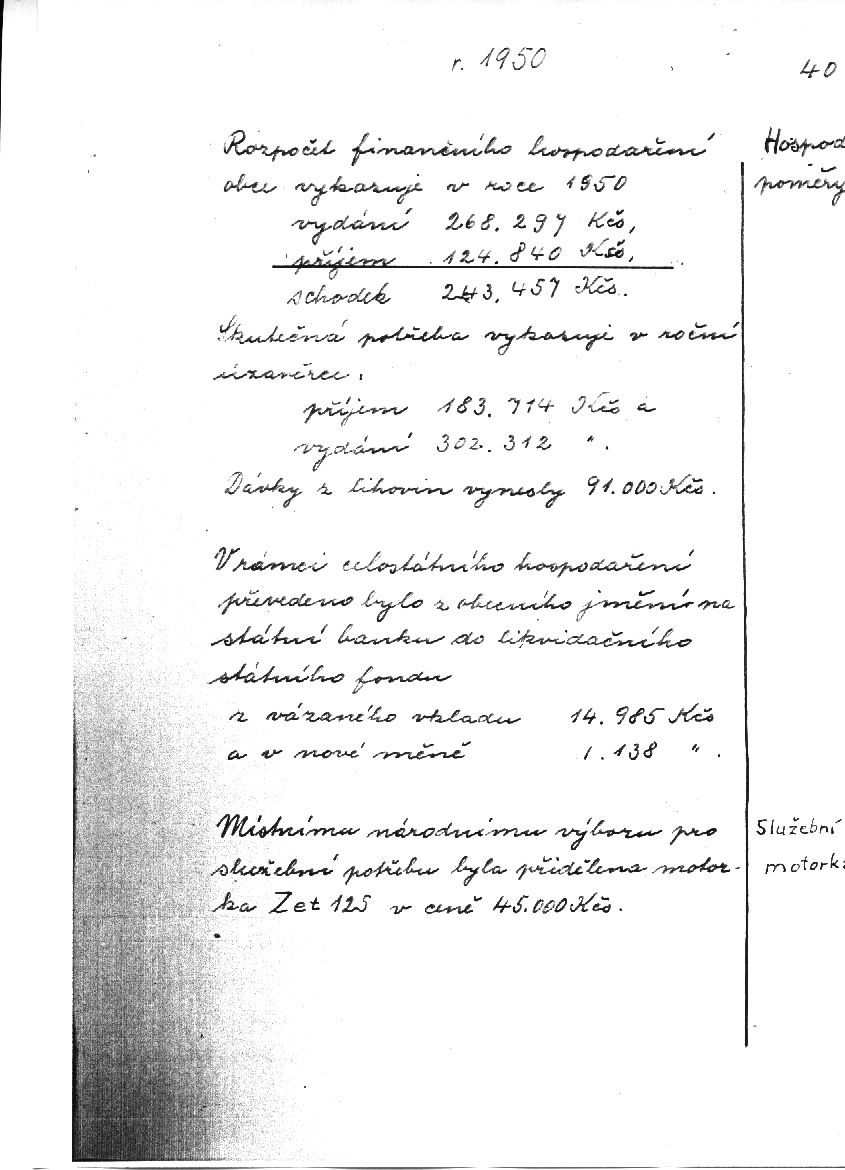 r. 1950
40
Rozpočet finančního hospodaření
obce vykazuje v roce 1950
vydání 268.297 Kčs,
příjem 124.840 Kčs,
schodek 243.457 Kčs.
Skutečná potřeba vykazuje v roční
uzavěrce:
příjem 183.714 Kčs a
vydání 302.312 " .
Dávky z lihovin vynesly 91.000 Kčs.
V rámci celostátního hospodaření
převedeno bylo z obecního jmění na
státní banku do likvidačního
státního fondu
z vázaného vkladu 14.985 Kčs
a v nové měně 1.138 " .
Místnímu národnímu výboru pro
služební potřebu byla přidělena motor-
ka Zet 125 v ceně 45.000 Kčs.
Hospod
poměry
Služební
motorka